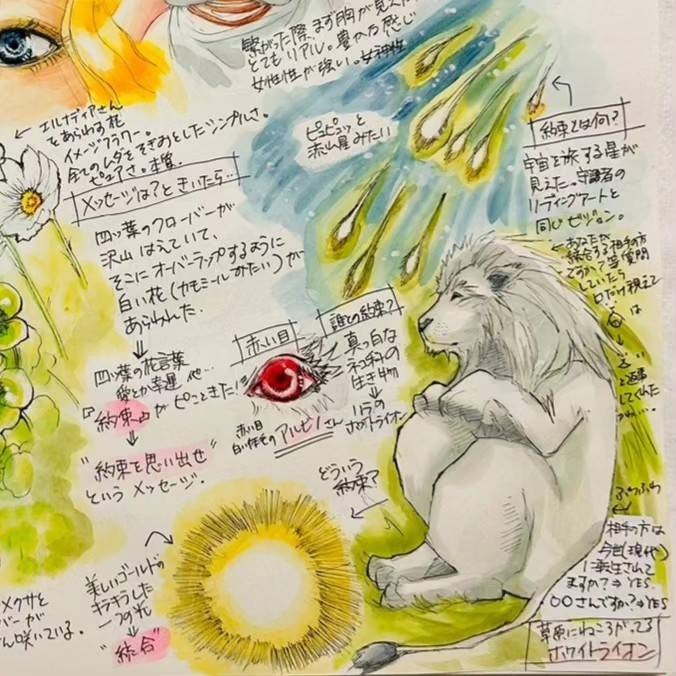 繋がった際、まず胸が見えた
とてもリアル。豊かな感じ
女性性が強い。女神性
エルナディアさん
をあらわす花
イメージフラワー。
全てのムダをそぎおとしたシンプルさ。
ピュアさ。本質
メッセージは？ときいたら…
四ッ葉のクローバーが
沢山はえていて、
そこにオーバーラップするように
白い花（カモミールみたい）が
あらわれた。
四ッ葉の花言葉
愛とか幸運 他…
『約束』がピンときた！
"約束を思い出せ"
というメッセージ。
ピュピュッと
流れ星みたい
約束とは何？
宇宙を旅する星が
見えた。守護者の
リーディングアートと
同じビジョン。
あなたが
統合する相手の方
ですか？等質問
していたら
口だけ視えて
は
と返事
してくれた
赤い目
赤い目
白い体毛のアルビノさん
誰との約束？
真っ白な
ネコ科の
生き物
ホワイトライオン
どういう
約束？
美しいゴールドの
キラキラした
一つの光
"統合"
メクサと
バーが
さん咲いている。
相手の方は
今世（現代）
に転生されて
ますか？⇒YES.
〇〇さんですか？⇒YES
草原にねころがってる
ホワイトライオン